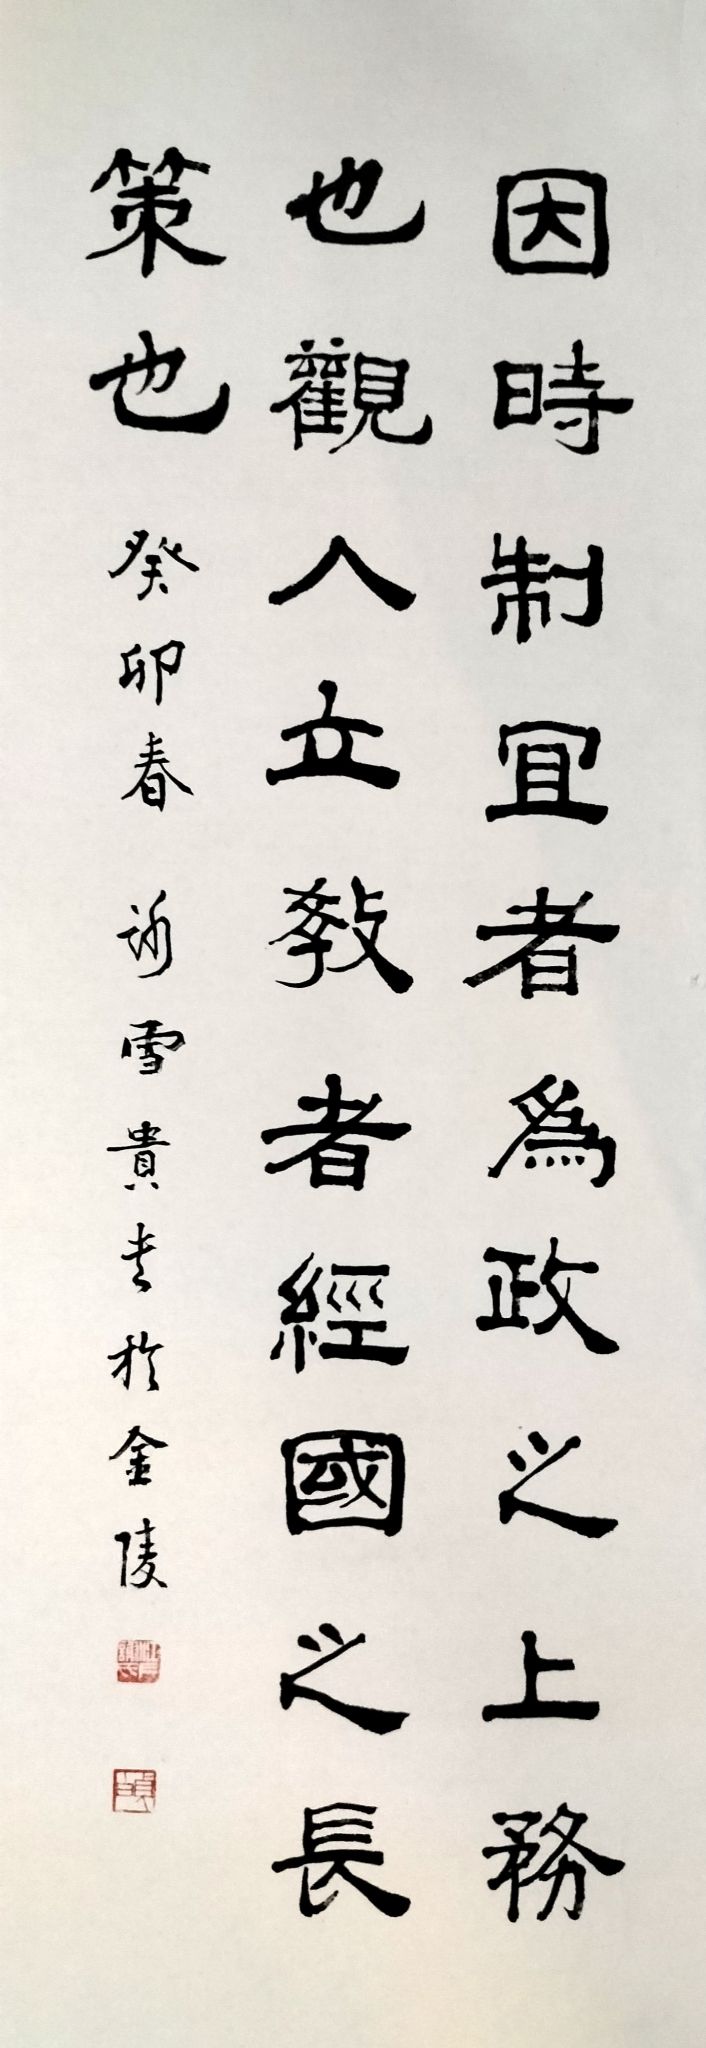 因時制宜者為政之上務
也觀人立教者經國之長
策也
癸卯春 雪貴書於金陵